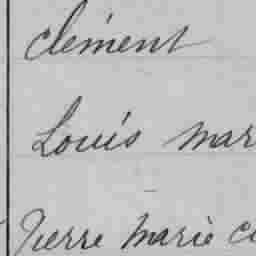 clément
Louis mar
Pierre marie cl